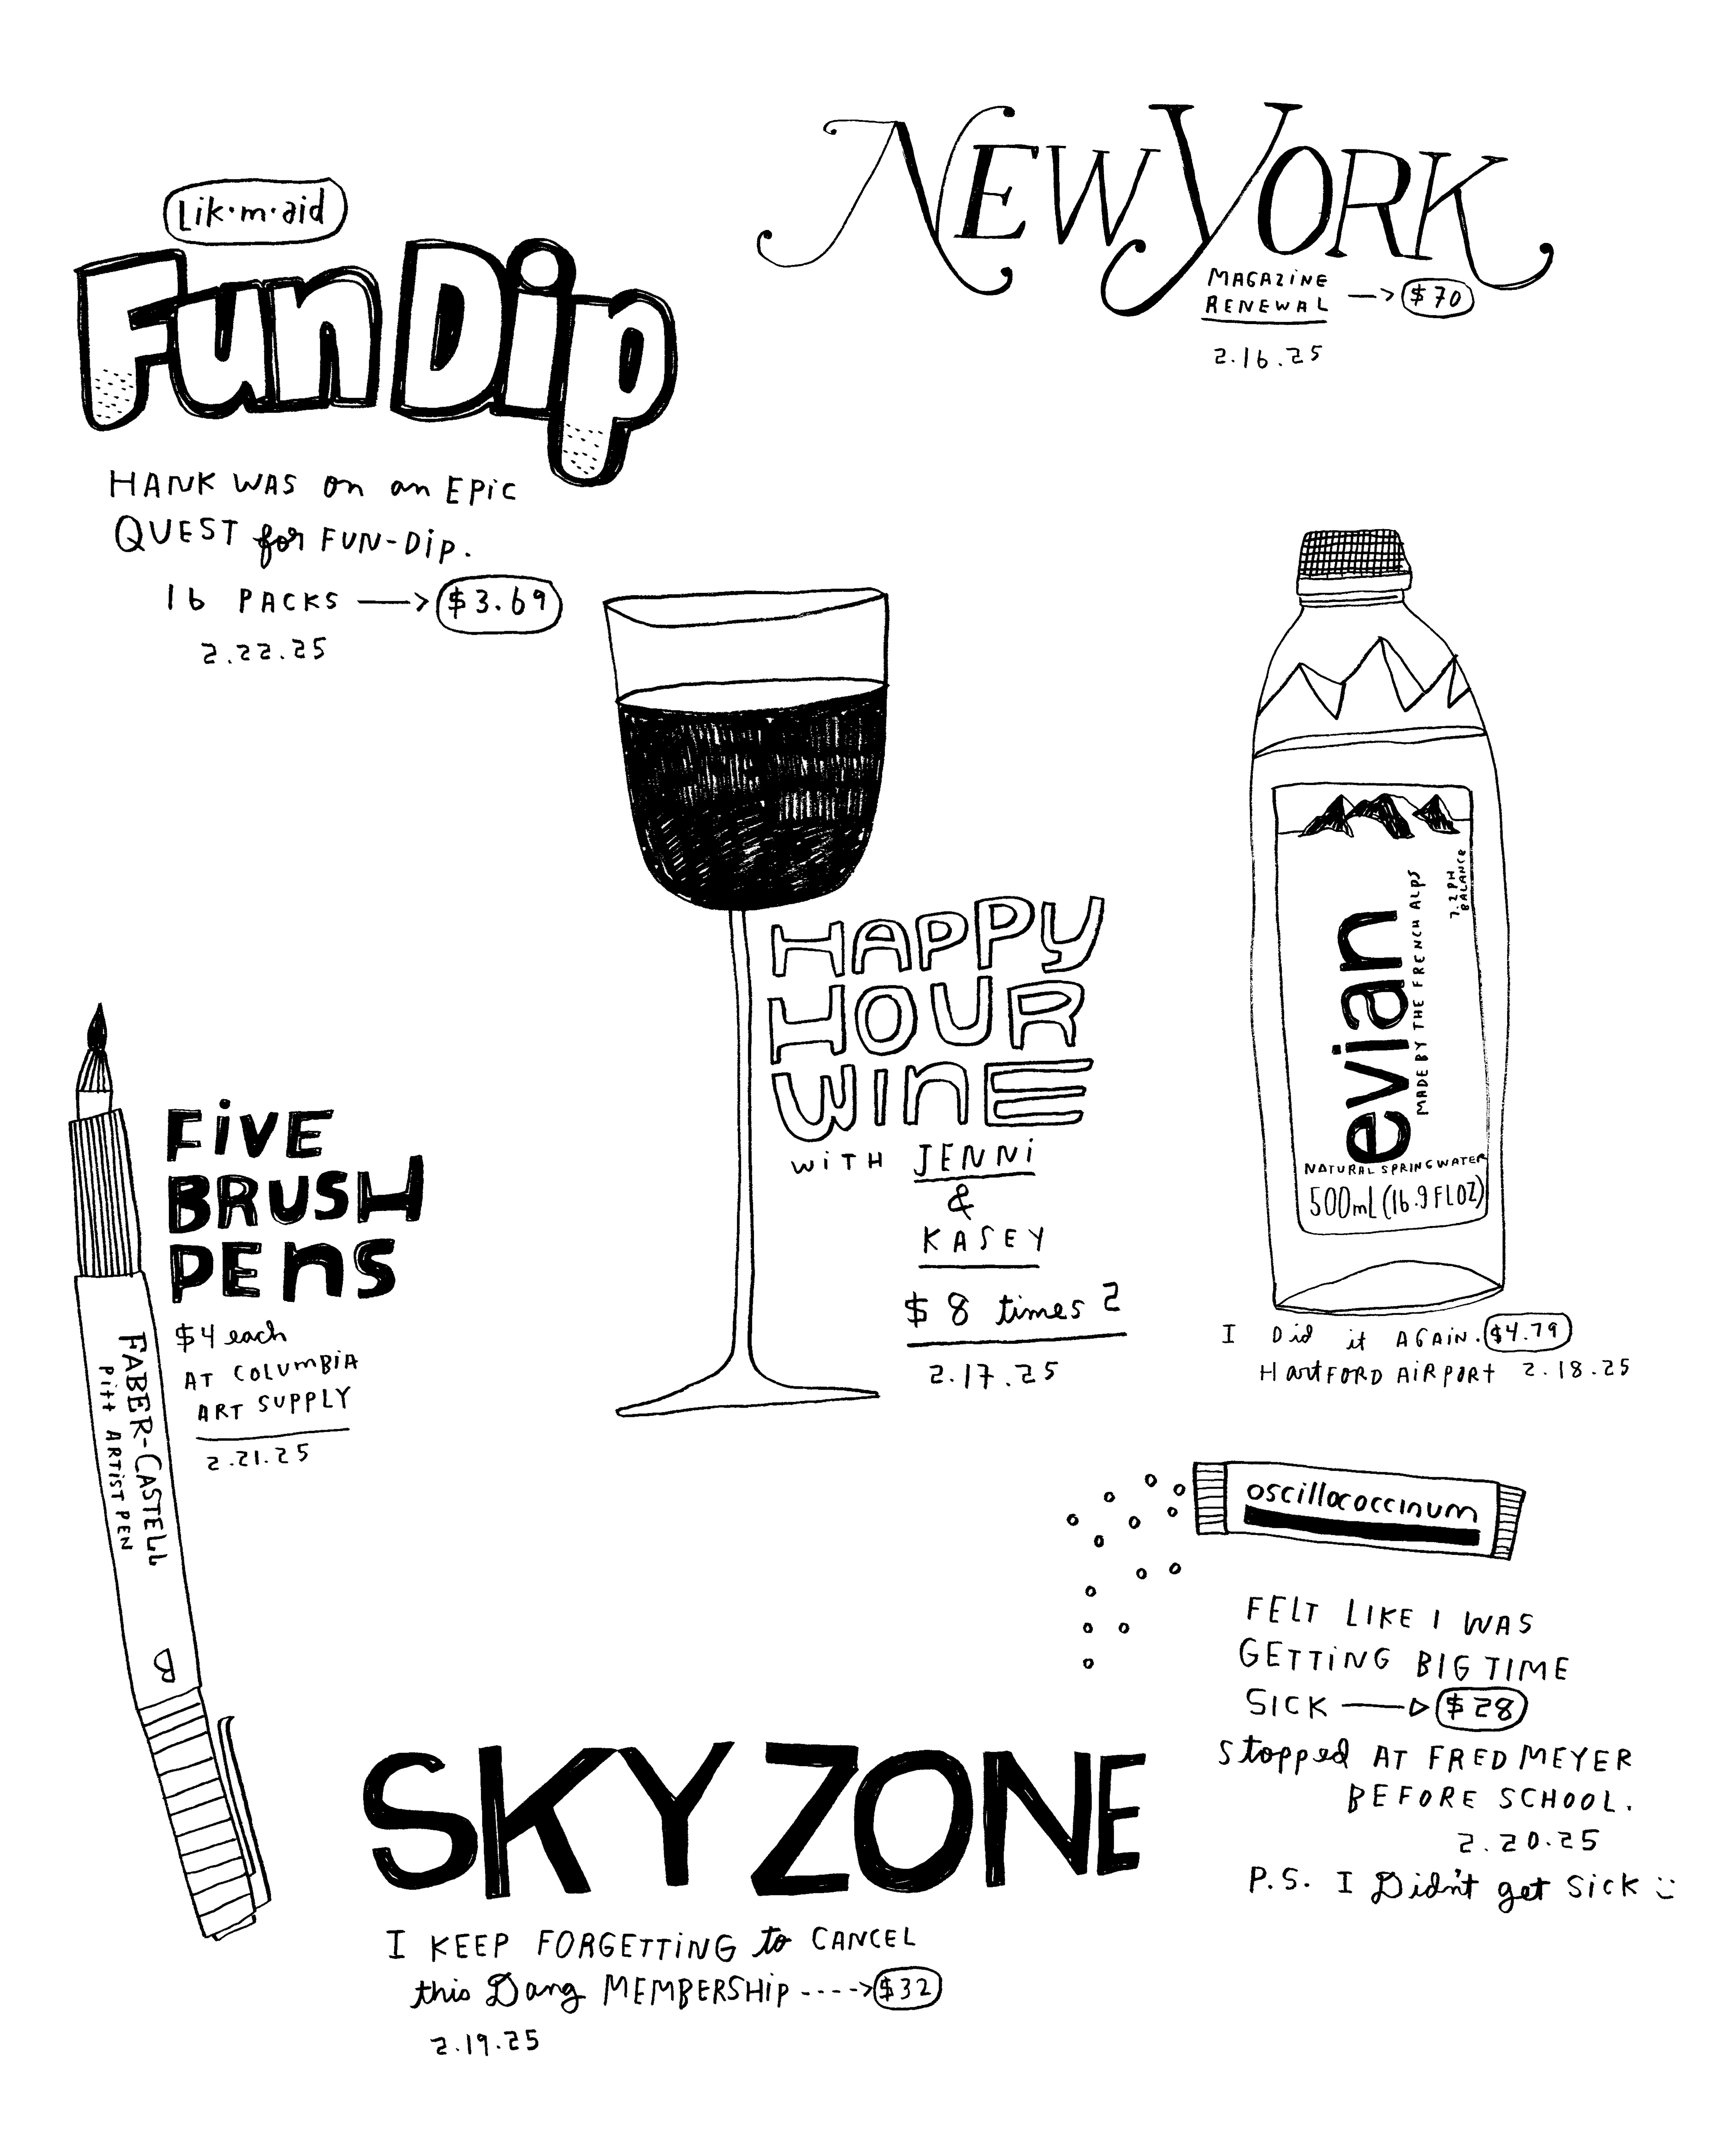 Lik•m•aid
Fun Dip
HANK WAS on an EPiC
QUEST for FUN-DiP.
16 PACKS → $3.69
2.22.25
NEW YORK
MAGAZiNE
RENEWAL → $70
2.16.25
evian
MADE BY THE FRENCH ALPS
7.2 PH
BALANCE
NATURAL SPRING WATER
500mL (16.9 FL OZ)
I Did it AGAiN. $4.79
HartFORD AiRPORt 2.18.25
HAPPY
HOUR
WinE
WiTH JENNi
&
KASEY
$8 times 2
2.17.25
FiVE
BRUSH
PEnS
$4 each
AT COLUMBiA
ART SUPPLY
2.21.25
FABER-CASTELL
Pitt ARTiST PEN
B
oscillococcinum
FELT LIKE I WAS
GETTiNG BIG TIME
SICK → $28
Stopped AT FRED MEYER
BEFORE SCHOOL.
2.20.25
P.S. I Didn't get SiCK :)
SKY ZONE
I KEEP FORGETTiNG to CANCEL
this Dang MEMBERSHiP ----> $32
2.19.25